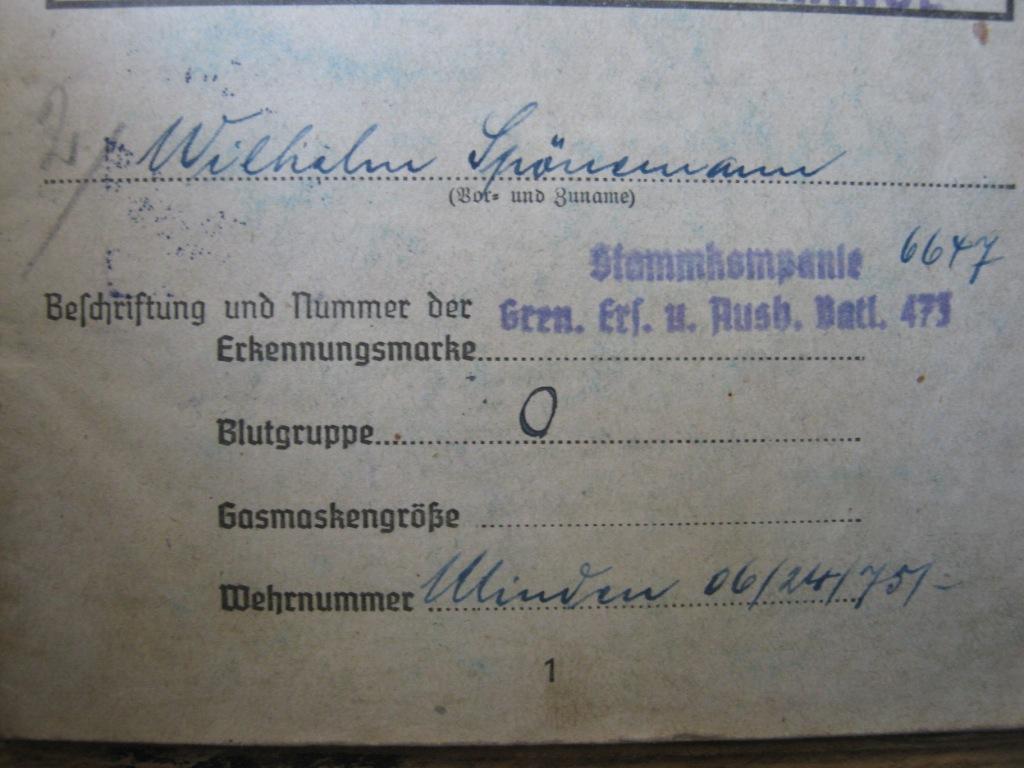 Wilhelm Spönemann
(Vor= und Zuname)
Stammkompanie 6647
Beschriftung und Nummer der Gren. Ers. u. Ausb. Batl. 473
Erkennungsmarke
Blutgruppe O
Gasmaskengröße
Wehrnummer Minden 06/24/75/-
1